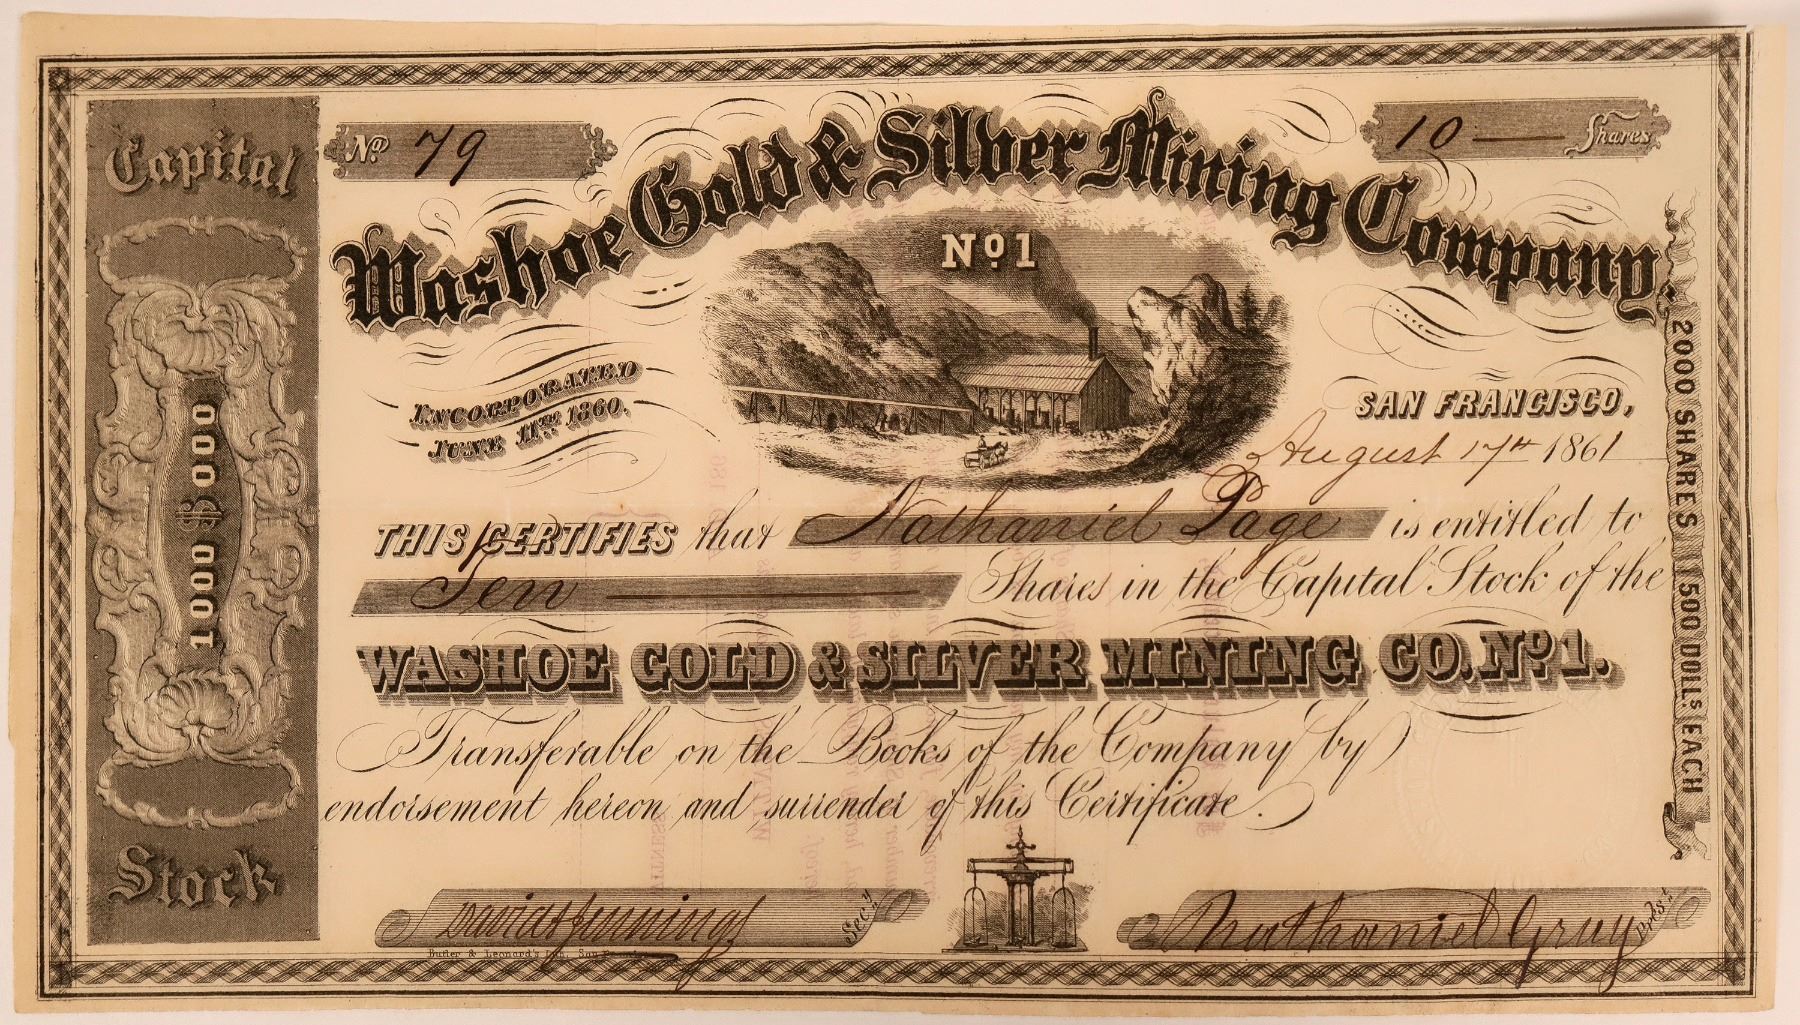 Capital
1000 $ 000
Stock
No. 79
10 — Shares
Washoe Gold & Silver Mining Company.
No 1
INCORPORATED
JUNE 11TH 1860.
SAN FRANCISCO,
August 17th 1861
THIS CERTIFIES that Nathaniel Page is entitled to
Ten — Shares in the Capital Stock of the
WASHOE GOLD & SILVER MINING CO. No 1.
Transferable on the Books of the Company by
endorsement hereon and surrender of this Certificate.
2000 SHARES 500 DOLLs. EACH
David Jennings Sec.y
Nathaniel Gray Prest.
Butler & Leonard's Lith. San